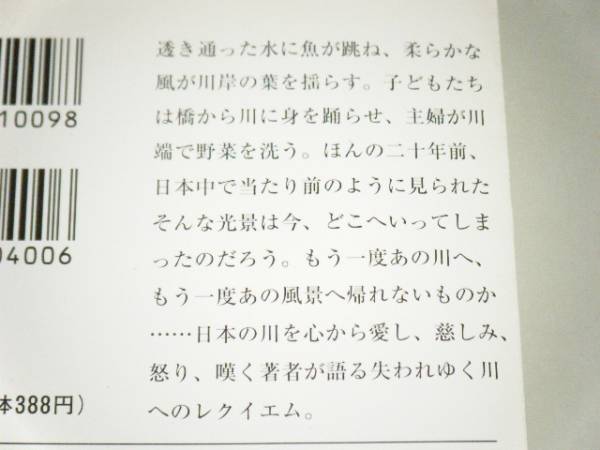 透き通った水に魚が跳ね、柔らかな
風が川岸の葉を揺らす。子どもたち
は橋から川に身を踊らせ、主婦が川
端で野菜を洗う。ほんの二十年前、
日本中で当たり前のように見られた
そんな光景は今、どこへいってしま
ったのだろう。もう一度あの川へ、
もう一度あの風景へ帰れないものか
……日本の川を心から愛し、慈しみ、
怒り、嘆く著者が語る失われゆく川
へのレクイエム。
10098
04006
体388円)